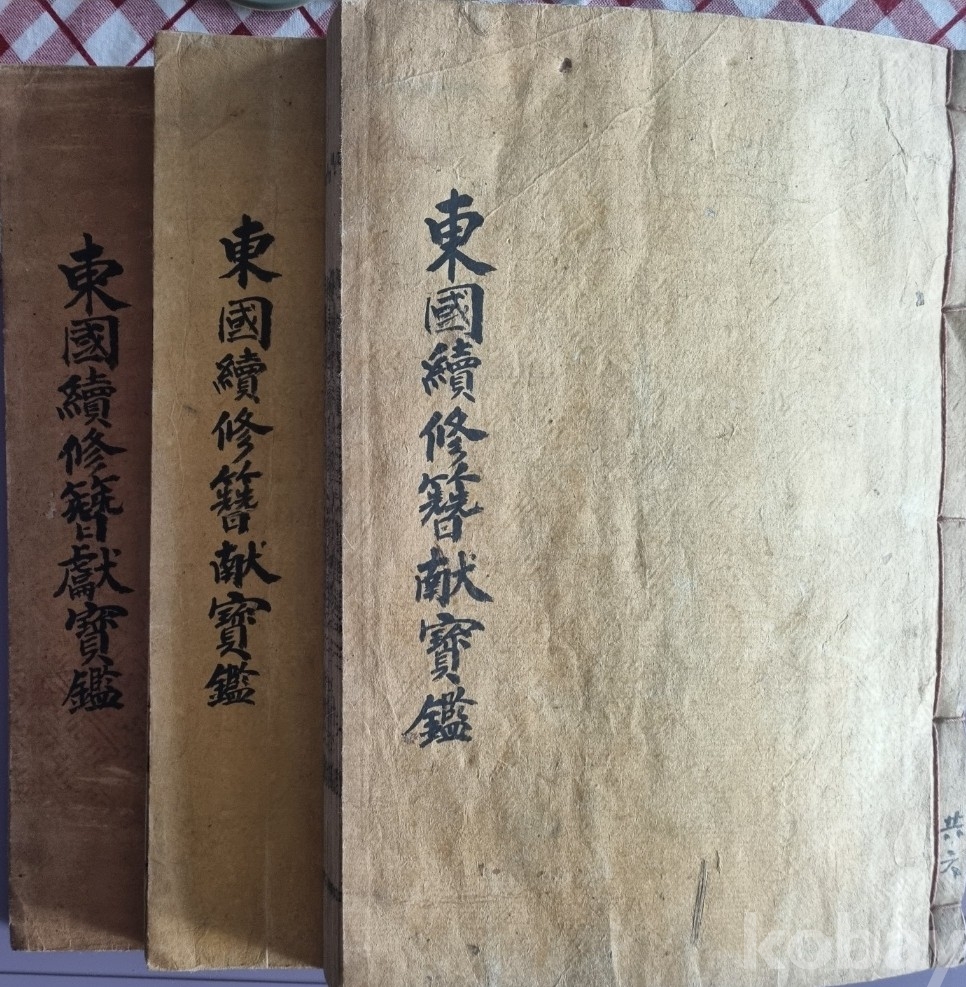 東國續修簪献寶鑑
共六
東國續修簪献寶鑑
東國續修簪獻寶鑑
kobay